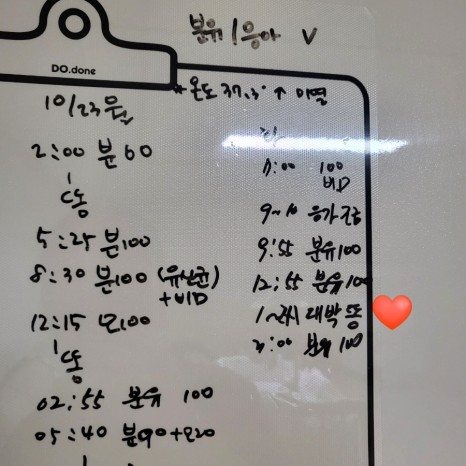 분유 / 응아 V
DO.done
* 온도 37.3° ↑ 미열
10/23 월
2:00 분 60
똥
5:25 분100
8:30 분100 (유산균)
+ 비D
12:15 모100
똥
02:55 분유 100
05:40 분90+모20
7:00 100
비D
9~10 응가 조금
9:55 분유100
12:55 분유 100
1~2시 대박 똥
분유 100